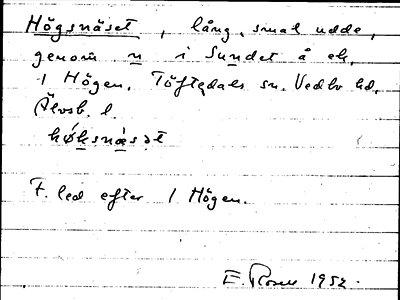 Högsnäset, lång, smal udde,
genom n i Sundet å ek.
1 Högen. Töftedals sn. Vedbo hd.
Älvsb. l.
høksnæsət
F. led efter 1 Högen.
E. Rosell 1952.